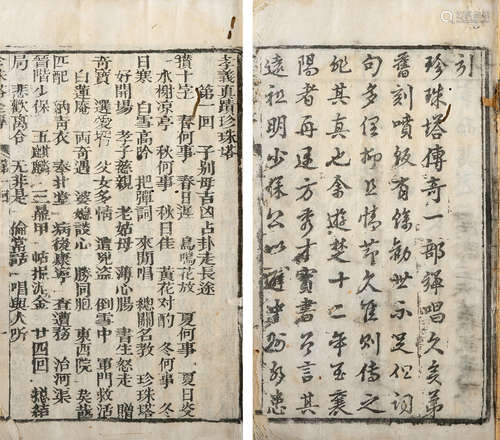 引
珍珠塔傳奇一部彈唱久矣第
舊刻噴飯有餘勸世不足但詞
句多俚抑且情節欠佳則傳之
非其真也余遊楚十二年至襄
陽者再逢方秀才寶書爲言其
遠祖明少保公以避中州水患
孝義真蹟珍珠塔
第一回 子別母吉凶占卦走長途
攢十字 春何事 春日遲 鳥鳴花放 夏何事 夏日炎
水榭凉亭 秋何事 秋日佳 黃花對酌 冬何事 冬
日寒 白雪高吟 把彈詞 來開唱 總關名教 珍珠塔
好開塲 孝子慈親 老姑母 薄心腸 書生怒走 贈
奇寶 選愛婿 父女多情 遭兇盜 倒雪中 軍門救活
白蓮庵 兩奇遇 婆媳談心 勝同胞 東西院
匹配 青衣 奉 堂 病後康寧 查 務 治河
晉階少保 五麒麟 三 甲 姑 金 廿四回 總結
局 悲歡離合 無非是 倫常話 唱與人聽